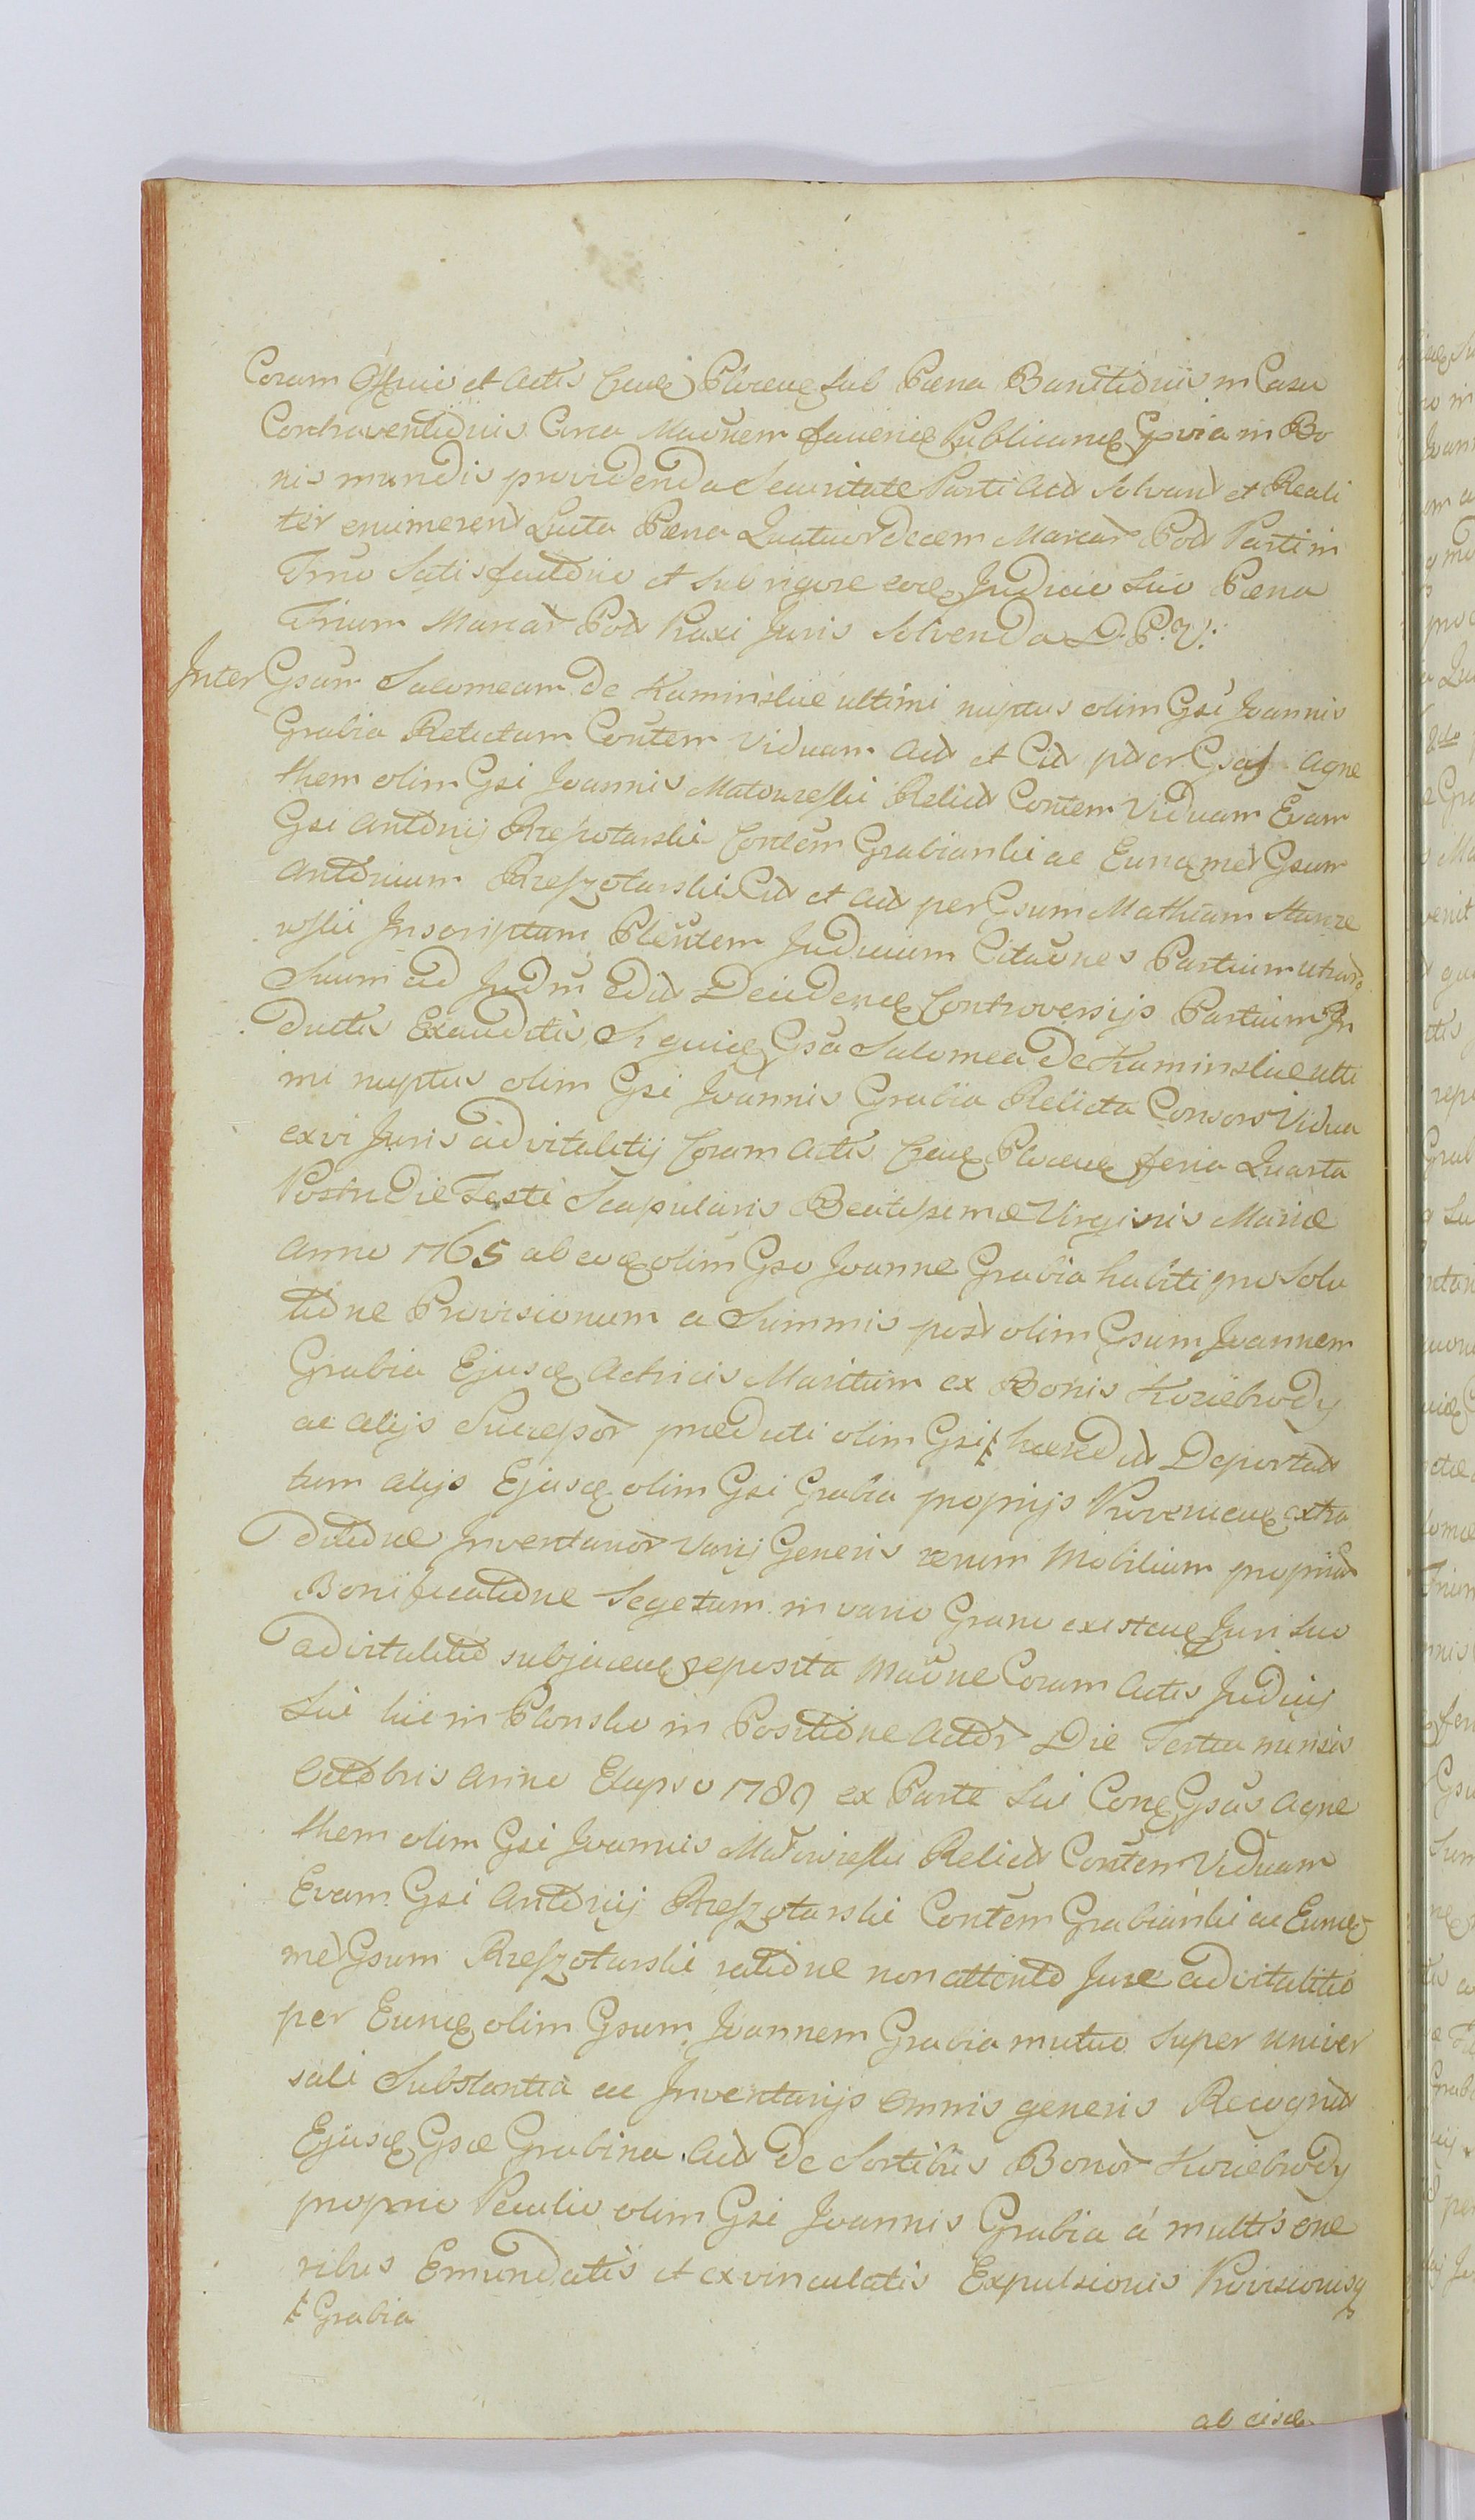 Coram Officio et Actis Creuq Plocenq sub Pæna Bannitionis in Casu
Contraventionis Circa Maõnem facienq Publicanq Gpria in Bo
nis mundis providenda Securitate Parti Act Solvend et Reali
ter enumerend Luita Pæna Quatuordecem Marcar Pod Parti in
Trno Satisfactione et Sub rigore eoq Judicio Suo Pæna
Trium Marcar Pod Praxi Juris Solvenda D. P. V.
Inter Gsam Salomeam de Kaminskie ultimi nuptus olim Gsi Joannis
Grabia Relictam Contem Viduam Act et Cit pder Gsas Agne
them olim Gsi Joannis Matowieskii Relict Contem Viduam Evam
Gsi Antonij Rzeszotarski Contem Grabianki ac Eunqmet Gsum
Antonium Rzeszotarski Cit et Act per Gsum Mathiam Stanze
wski Inscriptum Plentem Judicium Citaõnes Partium utrar
Suum ad Judm edit Decidenq Controversijs Partium In
ductis Exauditis Si quiq Gsa Salomea De Kaminskie ulti
mi nuptus olim Gsi Joannis Grabia Relicta Consors Vidua
ex vi Juris advitalitij Coram Actis Crenq Plocenq feria Quarta
Postridie Festi Scapularis Beatissimæ Virginis Mariæ
Anno 1765 ab eoq olim Gso Joanne Grabia habiti pro Solu
tione Provisionum a Summis post olim Gsum Joannem
Grabia Ejusq Actricis Maritum ex Bonis Koziebrody
ac alijs Successor præduti olim Gsi ⹋ hæred it Deportat
tum alijs Ejusq olim Gsi Grabia proprijs Provenienq extra
ditione Inventarior Varij Generis rerum Mobilium propriar
Bonificatione Segetum in vario Grano existenq Juri Suo
advitalitio subjacenq reposita Maõne Coram Actis Judicij
Sui hic in Plonsko in Positione Actor Die Tertia mensis
Octobris Anno Elapso 1789 ex Parte Sui Conq Gsas Agne
them olim Gsi Joannis Matowieski Relict Contem Viduam
Evam Gsi Antonij Rzeszotarski Contem Grabianki ac Eunq
met Gsum Rzeszotarski ratione non attento Jure advitalitio
per Eunq olim Gsum Joannem Grabia mutuo Super univer
sali Substantia ac Inventarijs omnis generis Recognit
Ejusq Gsæ Grabina Act De Sortibus Bonor Koziebrody
proprio Peculio olim Gsi Joannis Grabia á multis one
ribus Emundatis et exvinculatis Expulsionis Provisionisq
⹋ Grabia
ab eisd